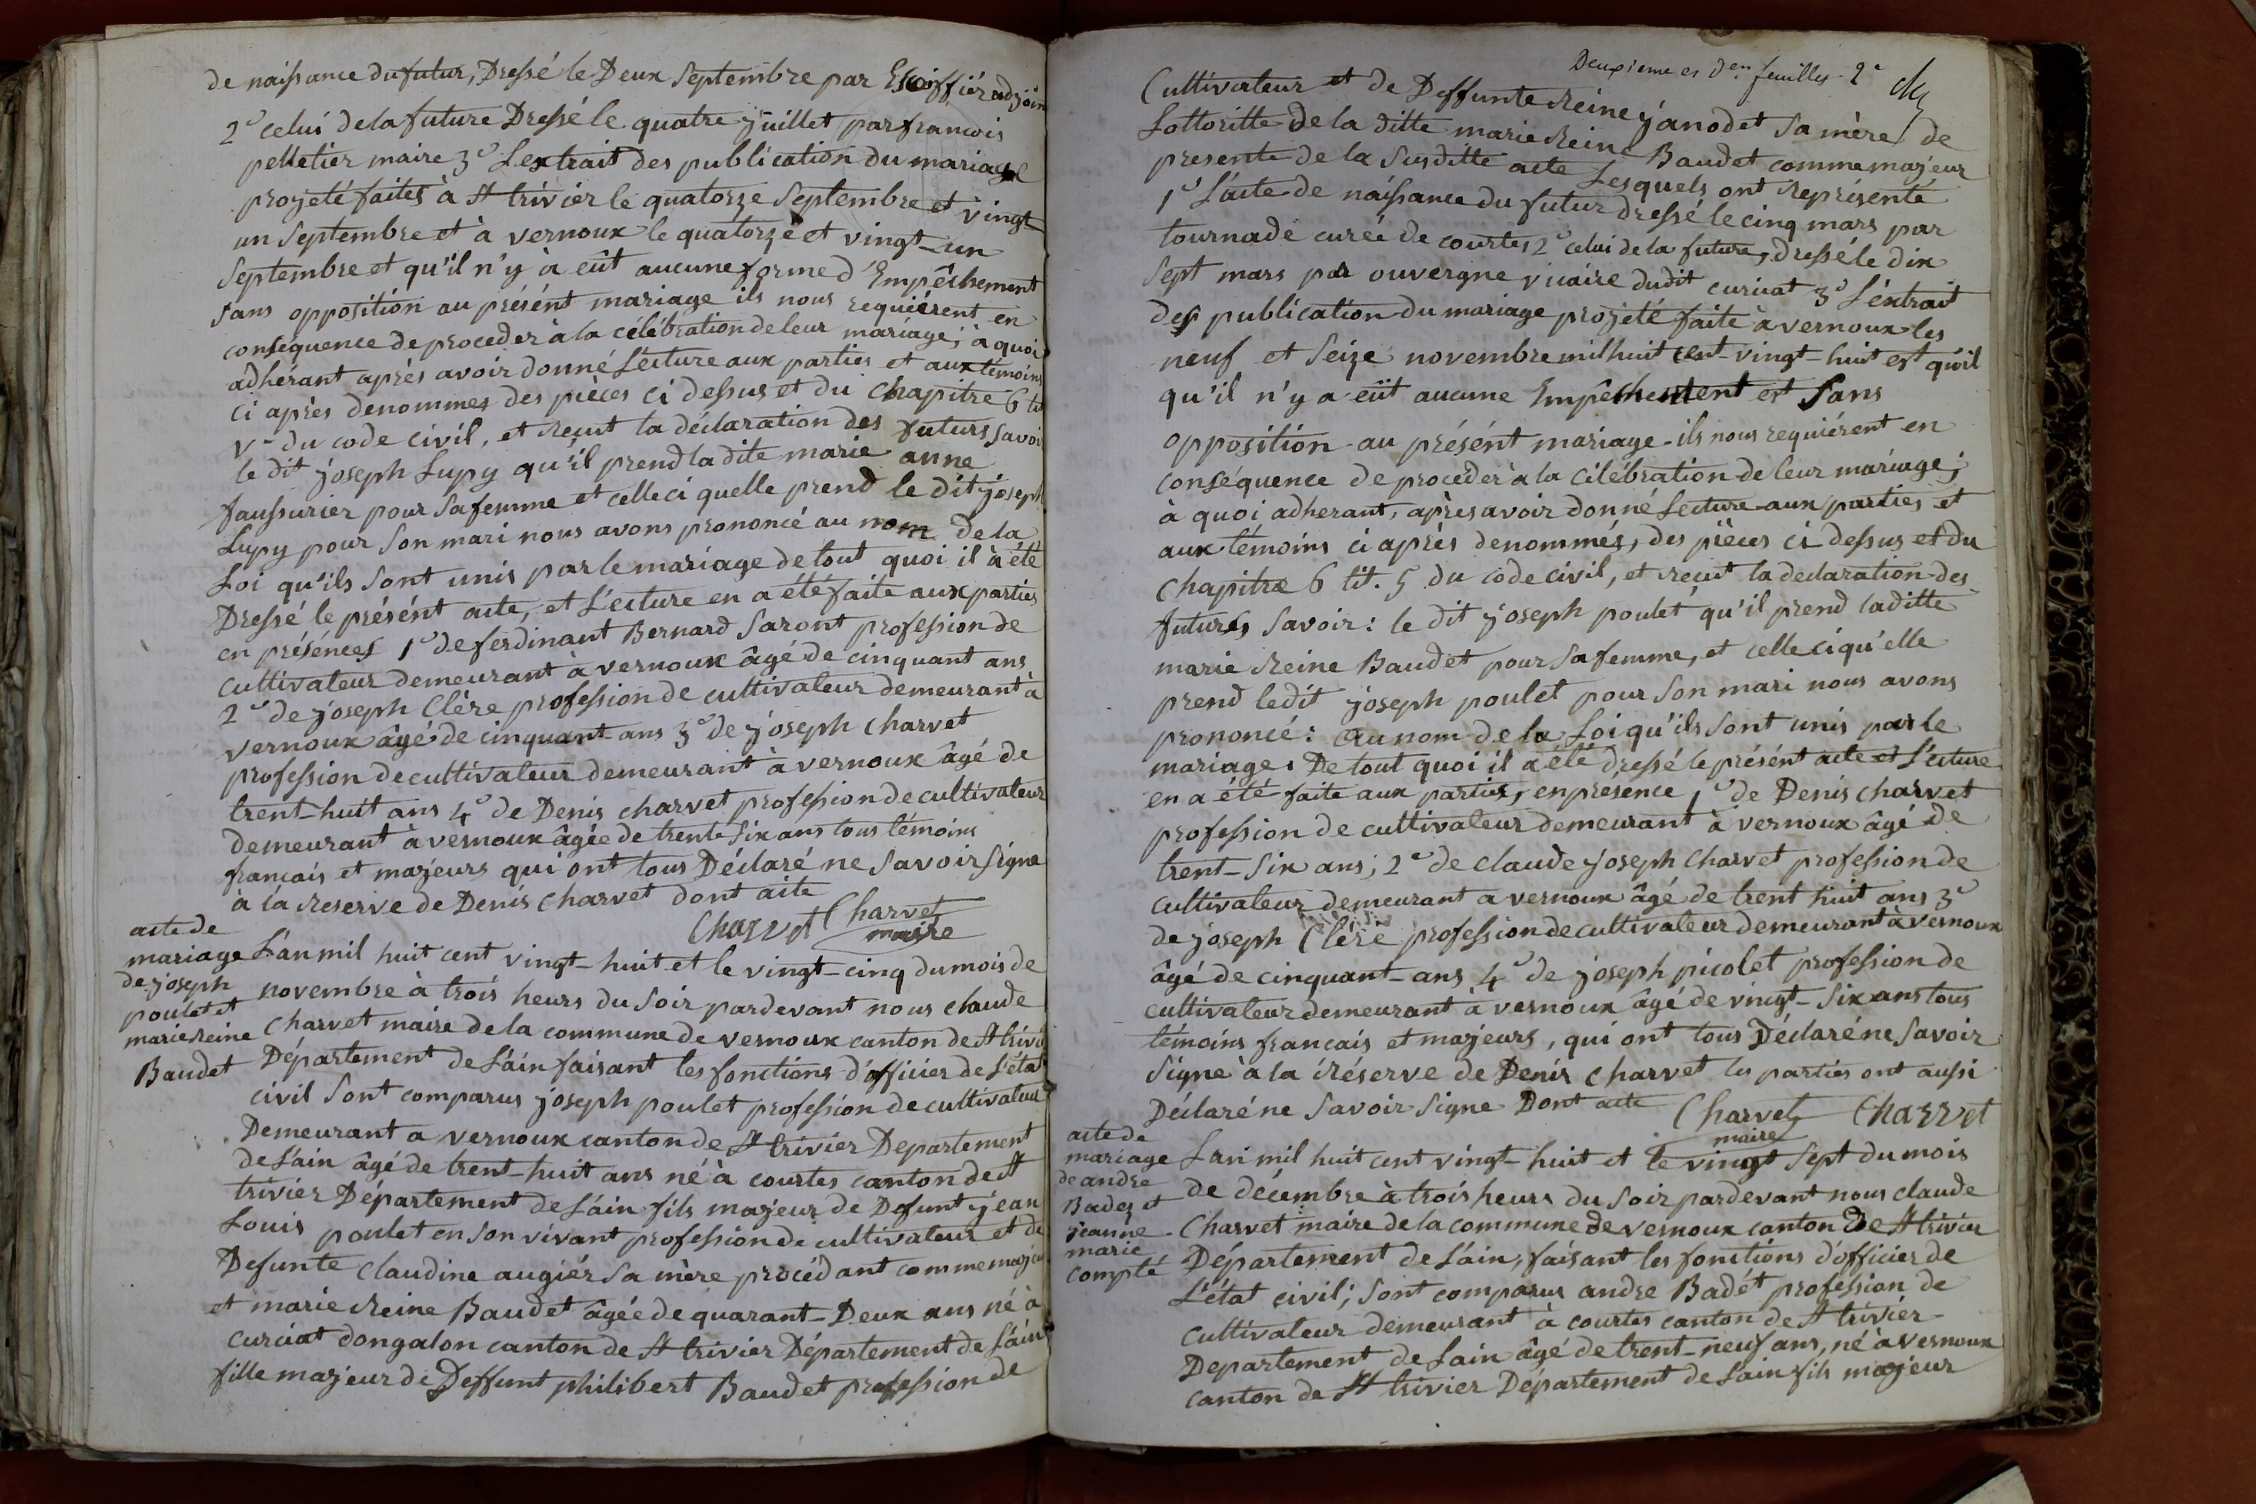 de naissance du futur, Dressé le Deux Septembre par Escoiffiér adjoin
2º celui de la future Dressé le quatre juillet par francois
pelletier maire 3º L'extrait des publication du mariage
projeté faites à St trivier le quatorze Septembre et vingt
un Septembre et à vernoux le quatorze et vingt-un
Septembre et qu'il n'y à eût aucune forme d'Empêchement
sans opposition au présént mariage ils nous requiérent en
conséquence de proceder à la célébration de leur mariage; à quoi
adhérant après avoir donné Lécture aux parties et aux témoins
ci après denommes des pièces ci dessus et du Chapitre 6 tit
V- du code civil, et reçut la déclaration des futurs Savoir
le dit joseph Lupy qu'il prend la dite marie anne
faussurier pour Sa femme et celle ci quelle prend le dit joseph
Lupy pour Son mari nous avons prononcé au nom de la
Loi qu'ils Sont unis par le mariage de tout quoi il à été
Dressé le présént acte, et L'ecture en a été faite aux parties
en présénces 1º de ferdinant Bernard Saront profession de
cultivateur demeurant à vernoux âgé de cinquant ans
2º de joseph Clère profession de cultivateur demeurant à
vernoux âgé de cinquant ans 3º de joseph charvet
profession de cultivateur demeurant à vernoux âgé de
trent-huit ans 4º de Denis charvet profession de cultivateur
demeurant à vernoux âgée de trente Six ans tous témoins
francais et majeurs qui ont tous Déclaré ne Savoir Signe
à la reserve de Denis Charvet dont acte
Charvet Charvet
maire
acte de
mariage
de joseph
poulet et
marie reine
Baudet
L'an mil huit cent vingt-huit et le vingt-cinq du mois de
novembre à trois heurs du Soir pardevant nous claude
Charvet maire de la commune de vernoux canton de St trivi
Département de L'ain faisant les fonctions d'officier de L'état
civil Sont comparus joseph poulet profession de cultivateur
Demeurant a vernoux canton de St trivier Departement
de L'ain âgé de trent-huit ans né à courtes canton de St
trivier Département de L'ain fils majeur de Defunt jean
Louis poulet en Son vivant profession de cultivateur et de
Defunte claudine augiér Sa mère procédant comme majeur
et marie reine Baudet âgée de quarant-Deux ans né à
curciat dongalon canton de St trivier Département de L'ain
fille majeur de Deffunt philibert Baudet profession de
Deuxieme et den feuilles 2e
Cultivateur et de Deffunte reine janodet Sa mère de
Lottoritte de la ditte marie reine Baudet comme majeur
presente de la Susditte acte Lesquels ont représenté
1º L'acte de naissance du futur dressé le cinq mars par
tournade curée de courtes 2º celui de la future, dressé le dix
Sept mars par ouvergne vicaire dudit curciat 3º L'extrait
des publication du mariage projeté faite à vernoux les
neuf et Seize novembre mil huit cent-vingt-huit et qu'il
qu'il n'y a eüt aucune Empêchement et Sans
opposition au présént mariage ils nous requiérent en
conséquence de procedèr à la célébration de leur mariage;
à quoi adherant, apres avoir donné Lecture aux parties et
aux témoins ci après denommés, des pièces ci dessus et du
Chapitre 6 tit. 5 du code civil, et reçut la declaration des
futurs Savoir : le dit joseph poulet qu'il prend la ditte
marie reine Baudet pour Sa femme, et celle ci qu'elle
prend ledit joseph poulet pour Son mari nous avons
prononcé : au nom de la Loi qu'ils Sont unis par le
mariage. De tout quoi il a été dressé le présént acte et L'ecture
en a été faite aux parties, en presence 1º de Denis charvet
profession de cultivateur demeurant à vernoux âgé de
trent-Six ans; 2º de claude joseph Charvet profession de
cultivateur demeurant a vernoux âgé de trent huit ans 3º
de joseph Clère profession de cultivateur demeurant à vernoux
âgé de cinquant-ans 4º de joseph picolet profession de
cultivateur demeurant à vernoux âgé de vingt-Six ans tous
témoins francais et majeurs, qui ont tous Déclaré ne Savoir
Signe à la réserve de Denis Charvet les parties ont aussi
Déclaré ne Savoir Signe Dont acte Charvet Charvet
maire
acte de
mariage
de andre
Badez et
jeanne
marie
compté
L'an mil huit cent vingt-huit et le vingt Sept du mois
de décembre à trois heurs du Soir pardevant nous claude
Charvet maire de la commune de vernoux canton de St trivier
Département de L'ain, faisant les fonctions d'officier de
L'état civil; Sont comparus andre Badét profession de
cultivateur demeurant à courtes canton de St trivier
Departement de Lain âgé de trent-neuf ans, né à vernoux
canton de St trivier Département de Lain fils majeur